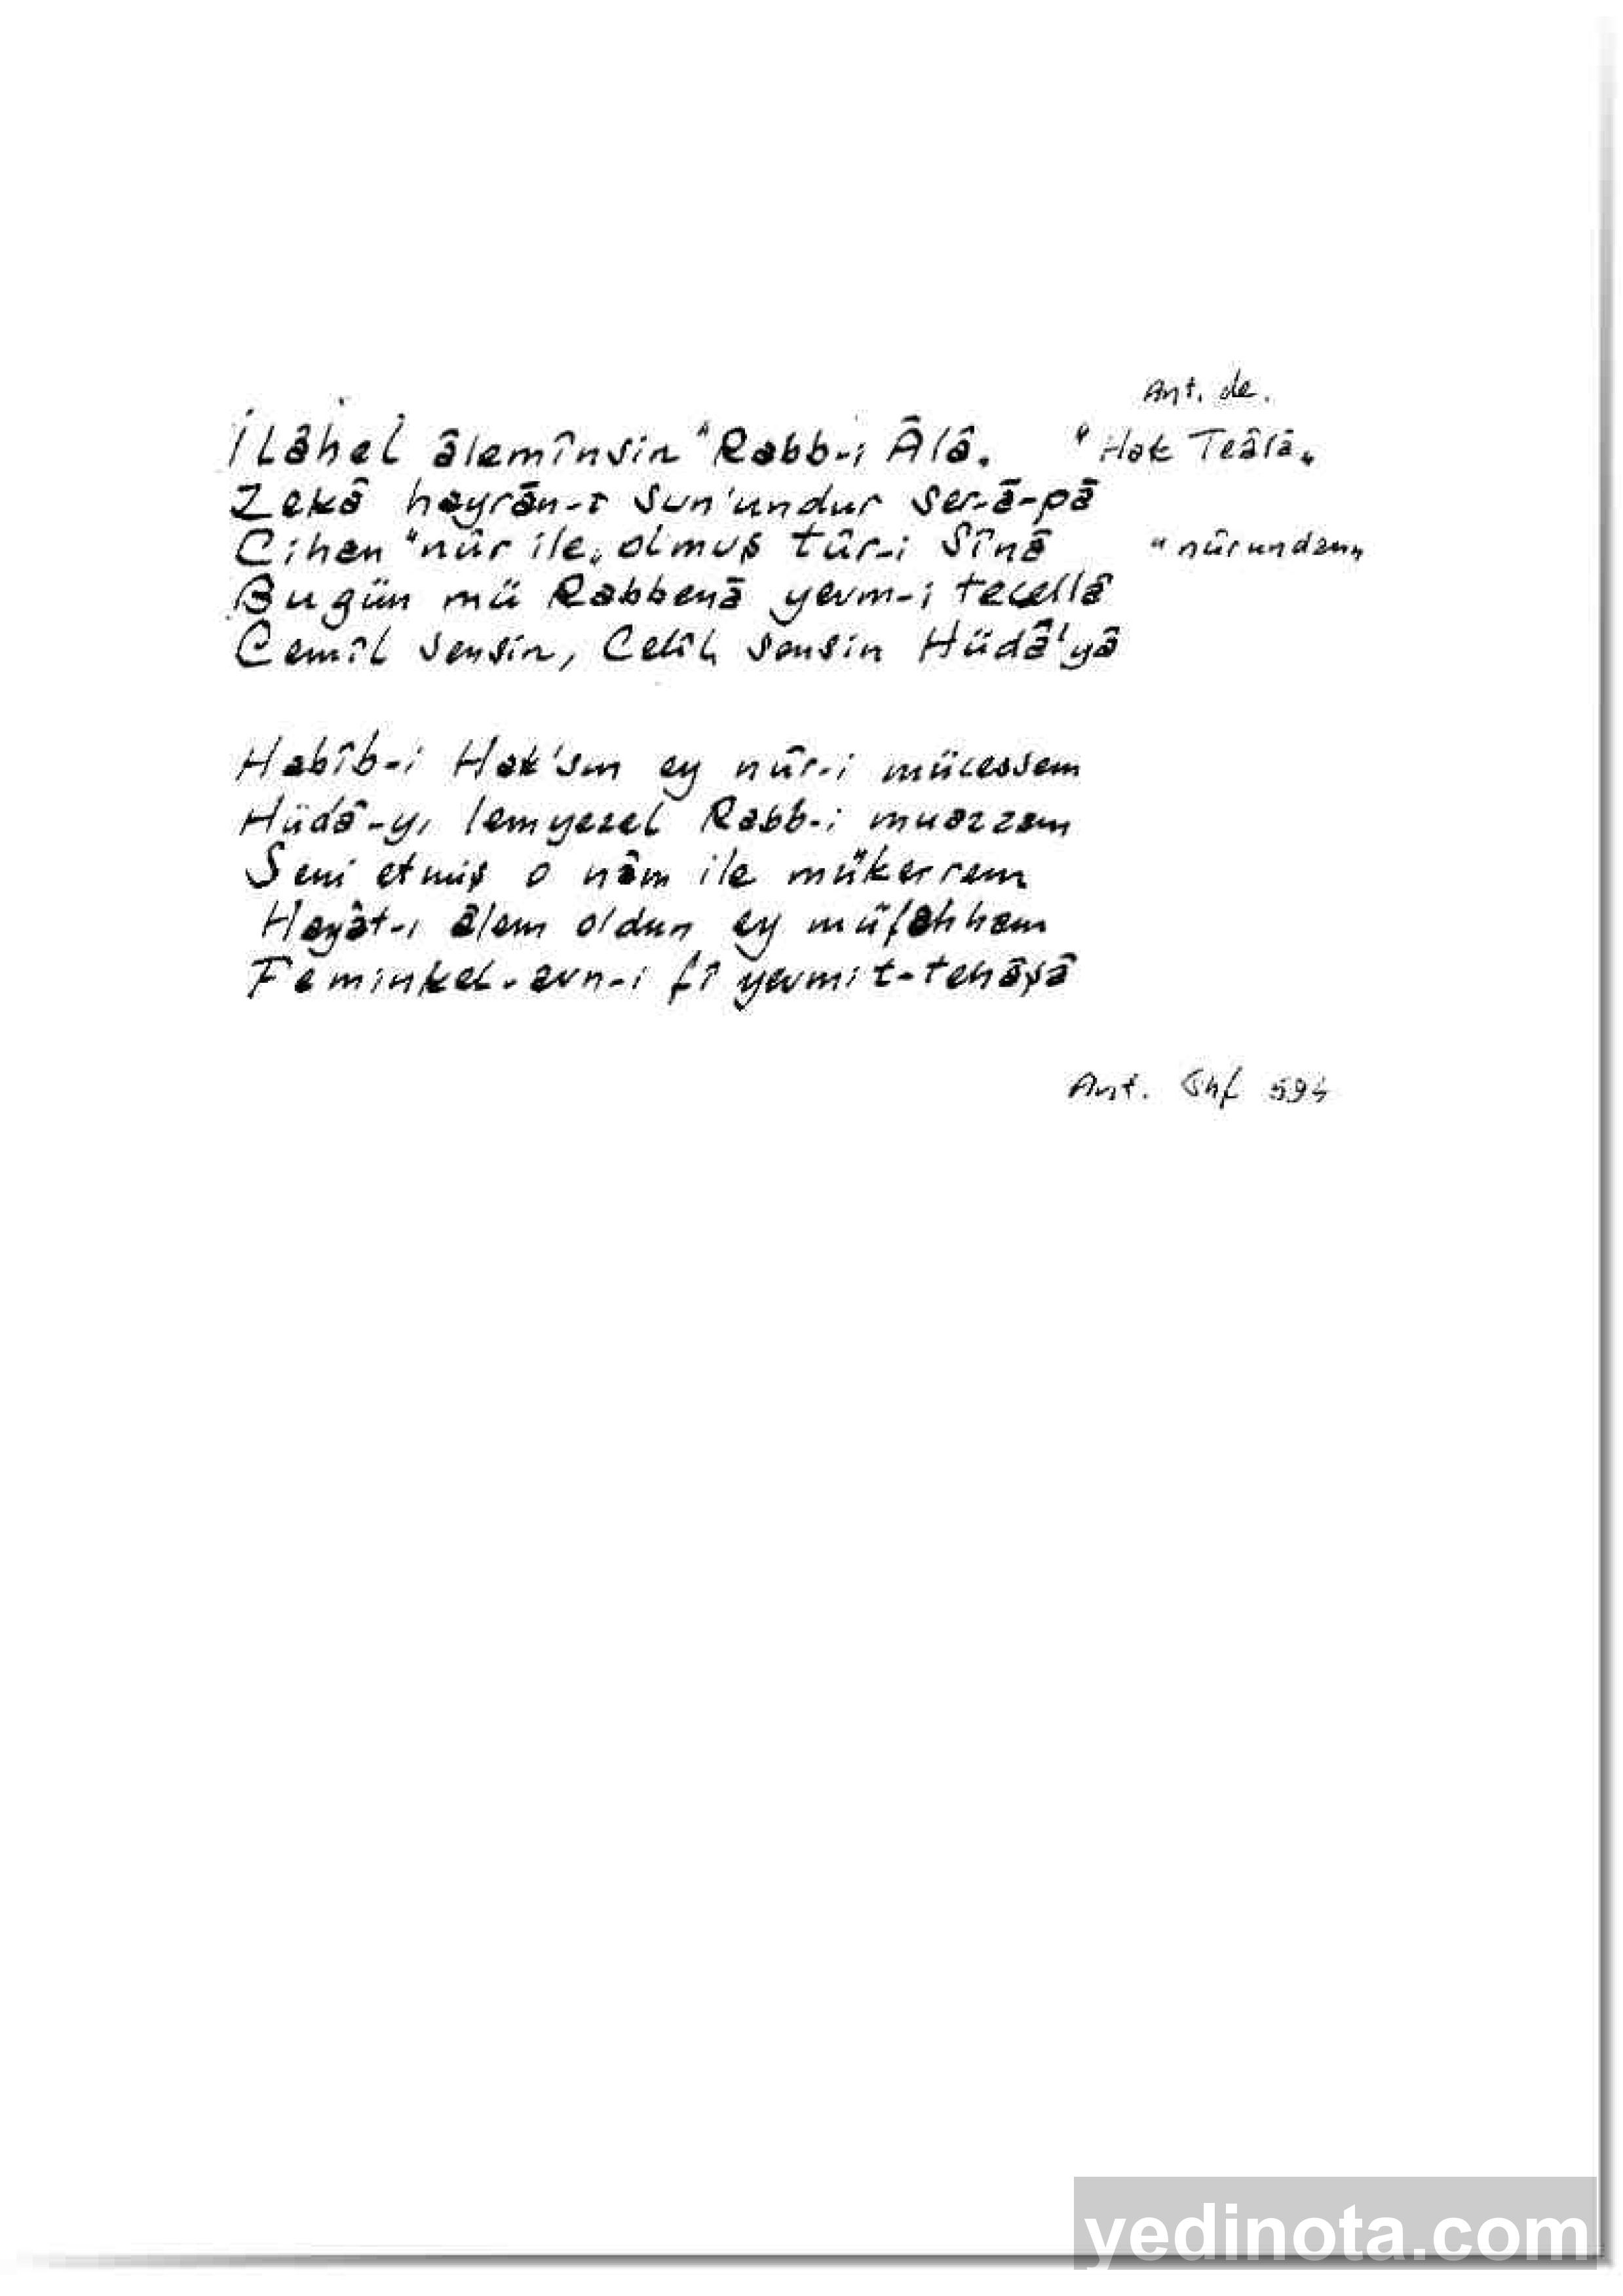 Ant. de.
İLâhel âlemînsin "Rabb-i Âlâ„ "Hak Teâlâ„
Zekâ hayrân-ı sun'undur ser-â-pâ
Cihan "nûr ile„ olmuş tûr-i Sînâ "nûrundan„
Bugün mü Rabbenâ yevm-i tecellâ
Cemîl sensin, Celîl sensin Hüdâ'yâ
Habîb-i Hak'sın ey nûr-i mücessem
Hüdâ-yı lemyezel Rabb-i muazzam
Seni etmiş o nâm ile mükerrem
Hayât-ı âlem oldun ey müfahham
Feminkel-avn-i fî yevmit-tehâşâ
Ant. Shf
yedinota.com